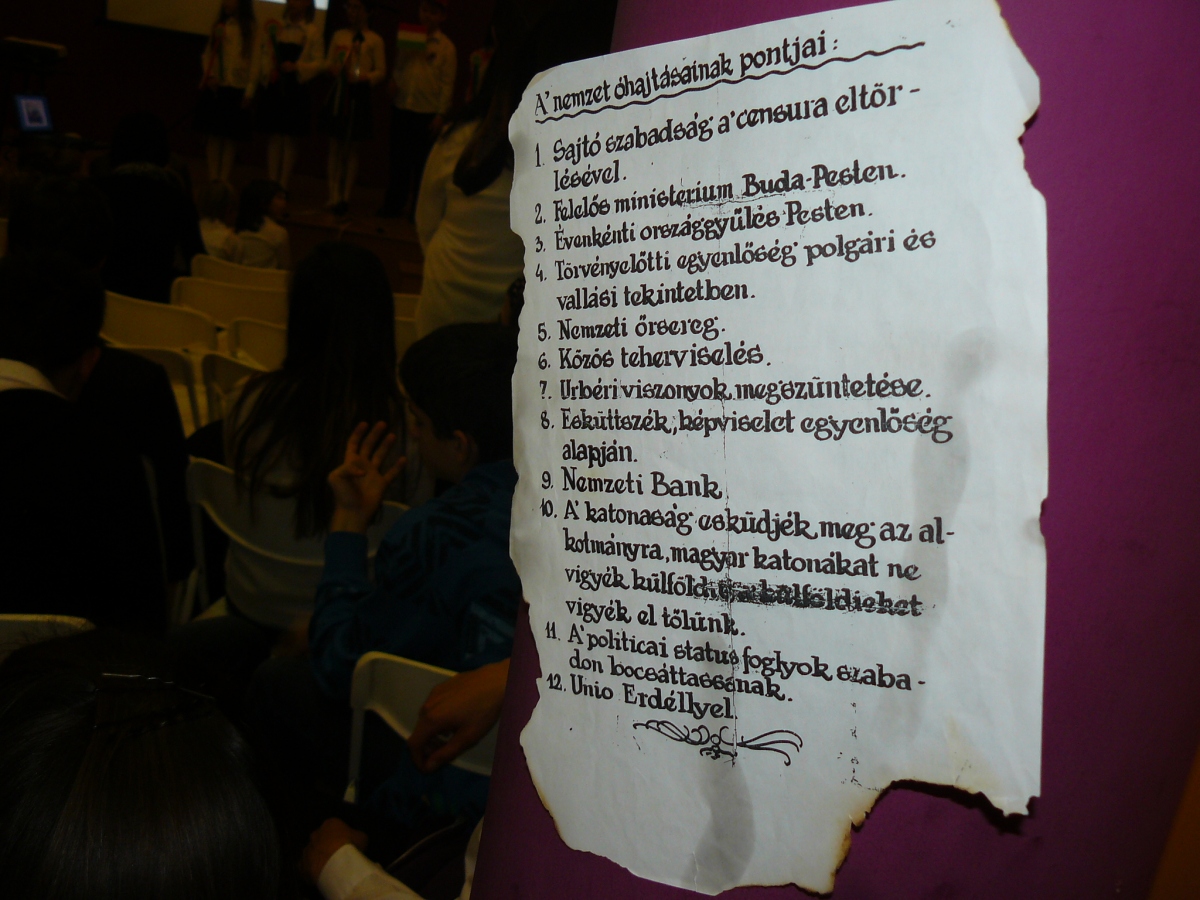 A' nemzet óhajtásainak pontjai:
1. Sajtó szabadság a' censura eltőr-
lésével.
2. Felelős ministerium Buda-Pesten.
3. Évenkénti országgyűlés Pesten.
4. Törvényelőtti egyenlőség polgári és
vallási tekintetben.
5. Nemzeti őrsereg.
6. Közös teherviselés.
7. Urbéri viszonyok megszüntetése.
8. Esküttszék, képviselet egyenlőség
alapján.
9. Nemzeti Bank
10. A' katonaság esküdjék meg az al-
kotmányra, magyar katonákat ne
vigyék külföldre a külföldieket
vigyék el tőlünk.
11. A' politicai status foglyok szaba-
don bocsáttassanak.
12. Unio Erdéllyel.